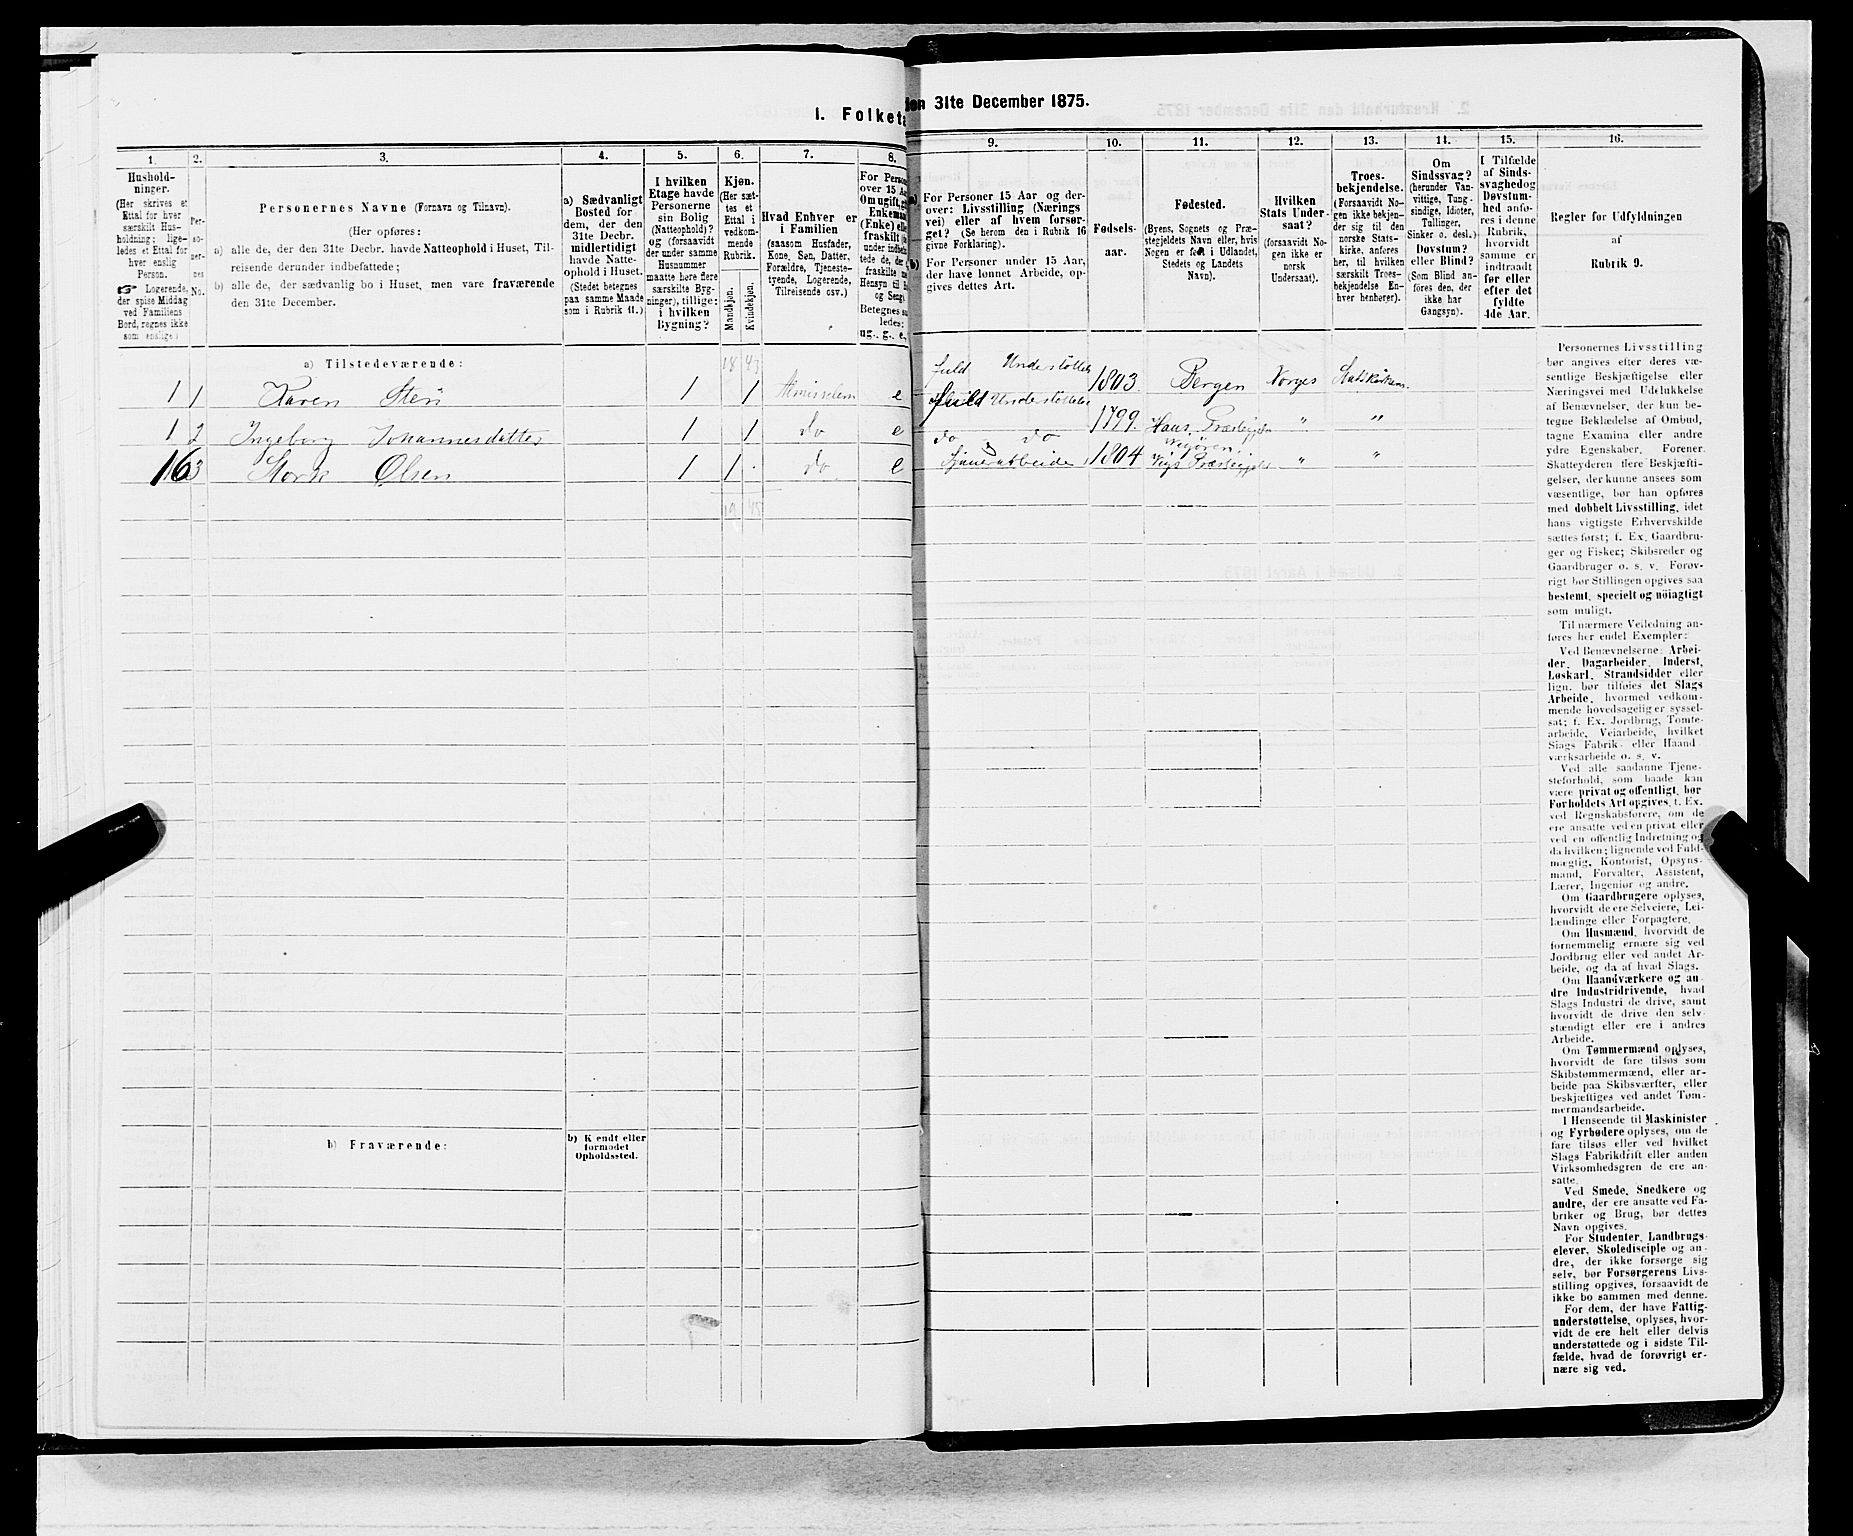 1. Folketæ
den 31te December 1875.
1.
2.
3.
4.
5.
6.
7.
8.
9.
10.
11.
12.
13.
14.
15.
16.
Hushold-
ninger.
(Her skrives et
Ettal for hver
særskilt Hus-
holdning; lige-
ledes et Ettal for
hver enslig
Person.
☞ Logerende,
der spise Middag
ved Familiens
Bord, regnes ikke
som enslige.)
Per-
so-
ner-
nes
No.
Personernes Navne (Fornavn og Tilnavn).
(Her opføres:
a) alle de, der den 31te Decbr. havde Natteophold i Huset, Til-
reisende derunder indbefattede;
b) alle de, der sædvanlig bo i Huset, men vare fraværende
den 31te December.
a) Sædvanligt
Bosted for
dem, der den
31te Decbr.
midlertidigt
havde Natte-
ophold i Huset.
(Stedet betegnes
paa samme Maade
som i Rubrik 11.)
I hvilken
Etage havde
Personerne
sin Bolig
(Natteophold)?
og (forsaavidt
der under samme
Husnummer
maatte høre flere
særskilte Byg-
ninger), tillige:
i hvilken
Bygning?
Kjøn.
(Her sæt-
tes et
Ettal i
vedkom-
mende
Rubrik.
Mandkjøn.
Kvindekjøn.
Hvad Enhver er
i Familien
(saasom Husfader,
Kone, Søn, Datter,
Forældre, Tjeneste-
tyende, Logerende,
Tilreisende osv.)
For Person
over 15 Aa
Om ugift, g
Enkeman
(Enke) elle
fraskilt (
under indbe
tede de, de
fraskilte
Hensyn til B
og Seng
Betegnes sa
ledes:
ug., g., e.,
a) For Personer 15 Aar og der-
over: Livsstilling (Nærings
vei) eller af hvem forsør-
get? (Se herom den i Rubrik 16
givne Forklaring).
b) For Personer under 15 Aar,
der have lønnet Arbeide, op-
gives dettes Art.
Fødsels-
aar.
Fødested.
(Byens, Sognets og Præ-
stegjeldets Navn eller, hvis
Nogen er født i Udlandet,
Stedets og Landets
Navn).
Hvilken
Stats Under-
saat?
(forsaavidt No-
gen ikke er
norsk
Undersaat).
Troes-
bekjendelse.
(Forsaavidt No-
gen ikke bekjen-
der sig til den
norske Stats-
kirke, anføres
her, til hvilken
særskilt Troes-
bekjendelse En-
hver henhører).
Om
Sindssvag?
(herunder Van-
vittige, Tung-
sindige, Idioter,
Tullinger,
Sinker o. desl.)
Døvstum?
eller Blind?
(Som Blind an-
føres den, der
ikke har
Gangsyn).
I Tilfælde
af Sinds-
svaghed og
Døvstum-
hed anfø-
res i denne
Rubrik,
hvorvidt
samme er
indtraadt
før eller
efter det
fyldte
4de Aar.
Regler for Udfyldningen
af
Rubrik 9.
a) Tilstedeværende:
18 43
1 1 Karen Sten 1 1 Almisselem e fuld Understøttelse 1803 Bergen Norges Statskirkens
fuld Understøttelse
1 2 Ingeborg Johannesdatter 1 1 do e do do 1799 Haus Præstegjeld " "
16 3 Stork Olsen 1 1 do e 1804 Præstegjeld " "
19 45
b) Fraværende:
b) Kjendt eller
formodet
Opholdssted.
Personernes Livsstilling
bør angives efter deres væ-
sentlige Beskjæftigelse eller
Næringsvei med Udelukkelse
af Benævnelser, der kun be-
tegne Beklædelse af Ombud,
tagne Examina eller andre
ydre Egenskaber. Forener
Skatteyderen flere Beskjæfti-
gelser, der kunne ansees som
væsentlige, bør han opføres
med dobbelt Livsstilling, idet
hans vigtigste Erhvervskilde
sættes først; f. Ex. Gaardbru-
ger og Fisker; Skibsreder og
Gaardbruger o. s. v. Forøv-
rigt bør Stillingen opgives saa
bestemt, specielt og nöiagtigt
som muligt.
Til nærmere Veiledning an-
føres her endel Exempler:
Ved Benævnelserne: Arbei-
der, Dagarbeider, Inderst,
Løskarl, Strandsidder eller
lign. bør tilføies det Slags
Arbeide, hvormed vedkom-
mende hovedsagelig er syssel-
sat; f. Ex. Jordbrug, Tomte-
arbeide, Veiarbeide, hvilket
Slags Fabrik- eller Haand-
værksarbeide o. s. v.
Ved alle saadanne Tjene-
steforhold, som baade kan
være privat og offentligt, bør
Forholdets Art opgives, f. Ex.
ved Regnskabsførere, om de
ere ansatte ved en privat eller
ved en offentlig Indretning og
da hvilken; lignende ved Fuld-
mægtig, Kontorist, Opsyns-
mand, Forvalter, Assistent,
Lærer, Ingeniør og andre.
Om Gaardbrugere oplyses,
hvorvidt de ere Selveiere, Lei-
lændinge eller Forpagtere.
Om Husmænd, hvorvidt de
fornemmelig ernære sig ved
Jordbrug eller ved andet Ar-
beide, og da af hvad Slags.
Om Haandværkere og an-
dre Industridrivende, hvad
Slags Industri de drive, samt
hvorvidt de drive den selv-
stændigt eller ere i andres
Arbeide.
Om Tømmermænd oplyses,
hvorvidt de fare tilsøs som
Skibstømmermænd, eller ar-
beide paa Skibsværfter, eller
beskjæftiges ved andet Tøm-
mermandsarbeide.
I Henseende til Maskinister
og Fyrbødere oplyses, om de
fare tilsøs eller ved hvilket
Slags Fabrikdrift eller anden
Virksomhedsgren de ere an-
satte.
Ved Smede, Snedkere og
andre, der ere ansatte ved Fa-
briker og Brug, bør dettes
Navn opgives.
For Studenter, Landbrugs-
elever, Skoledisciple og an-
dre, der ikke forsørge sig
selv, bør Forsørgerens Livs-
stilling opgives, forsaavidt de
ikke bo sammen med denne.
For dem, der have Fattig-
understøttelse, oplyses, hvor-
vidt de ere helt eller delvis
understøttede og i sidste Til-
fælde, hvad de forøvrigt er-
nære sig ved.